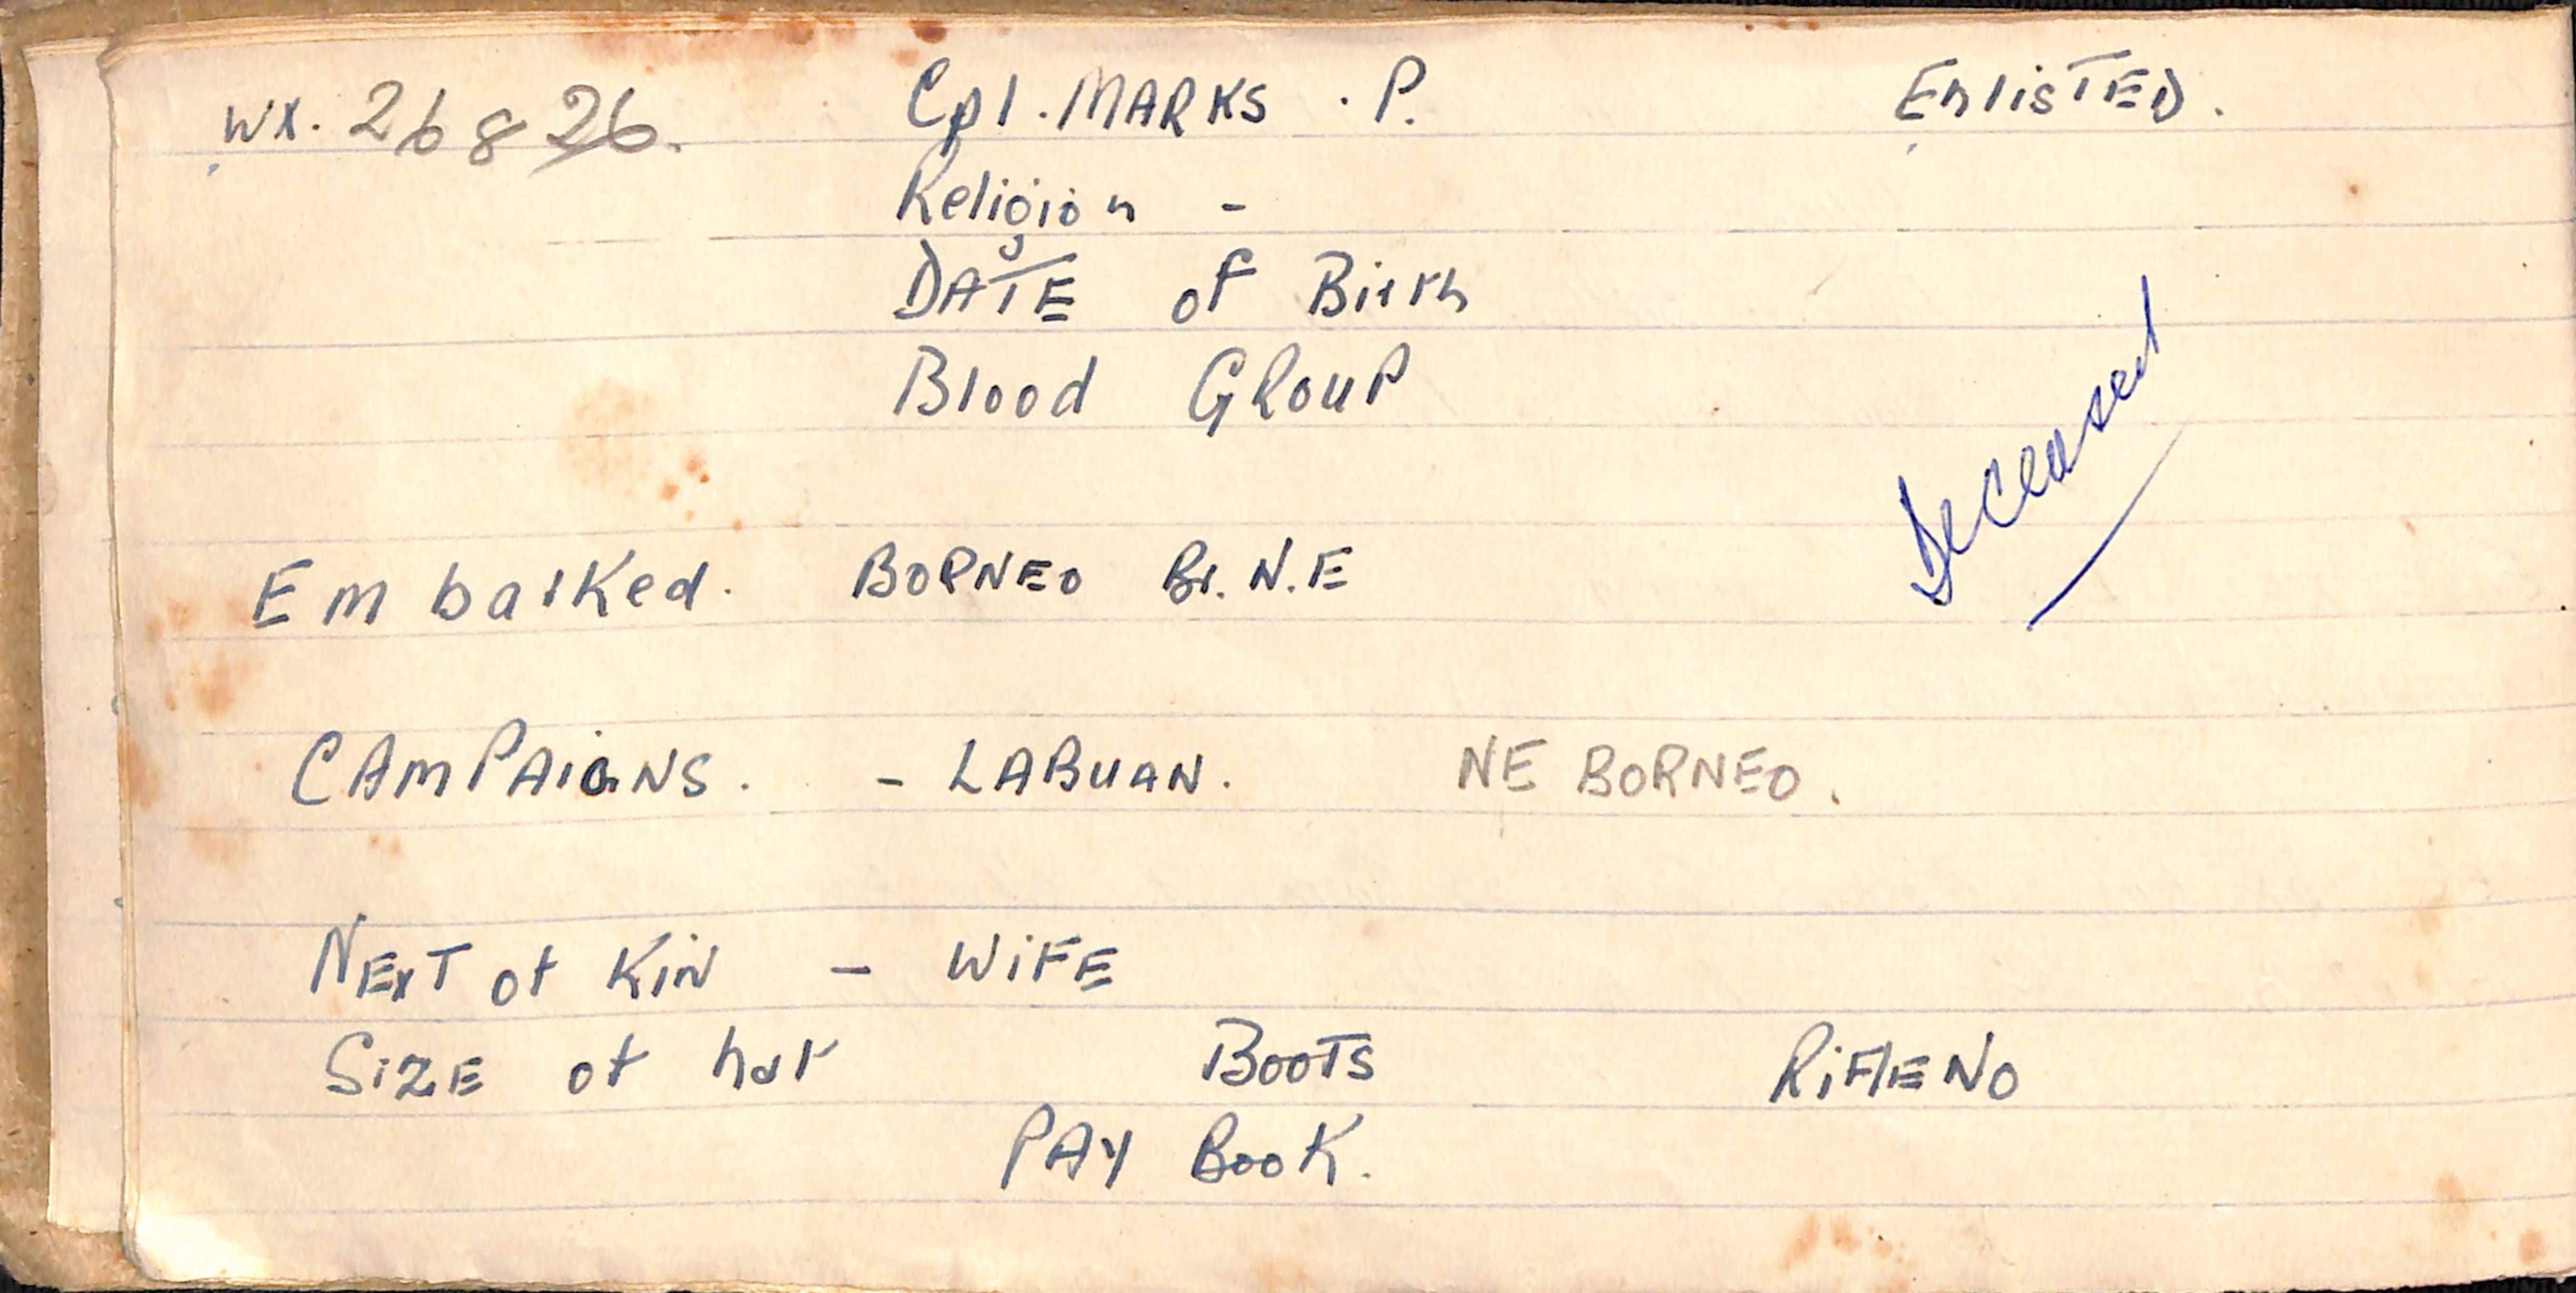 WX. 26826. Cpl. MARKS . P. EnlisTED.
Religion -
DATE of Birth
Blood GRouP
Deceased
Embarked. BORNEO Br. N.E
CAMPAiGNS. - LABUAN. NE BORNEO.
NExT of KiN - WiFE
SiZE of hat BooTs RiFlE No
PAY BooK.